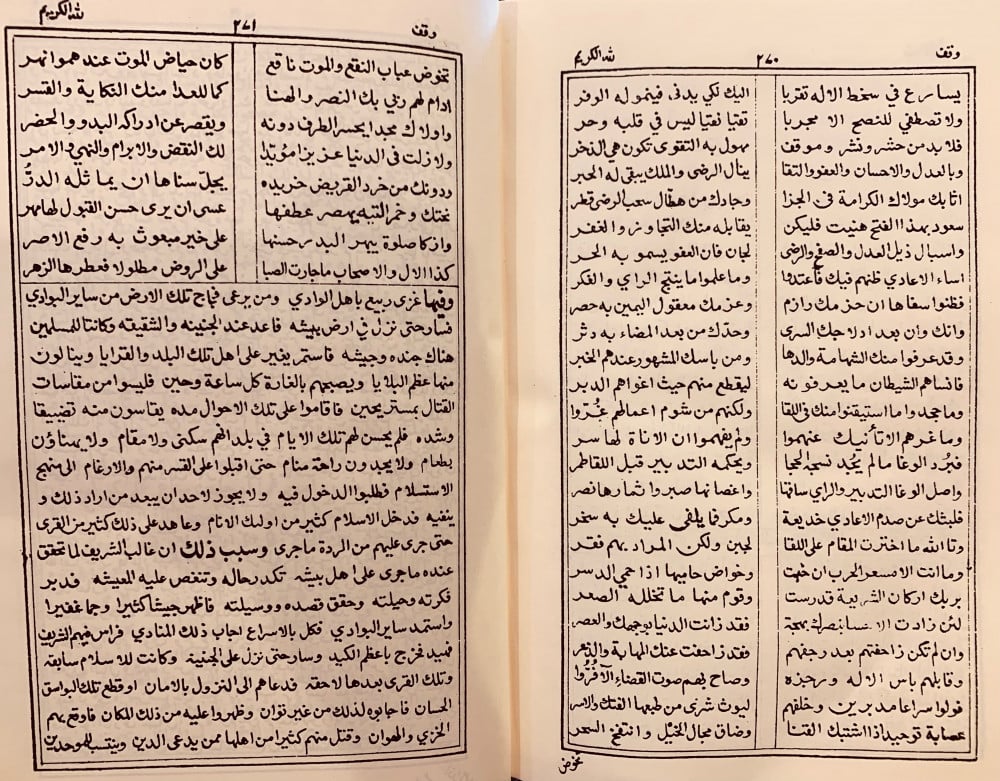 وقف
٢٧٠
لله الكريم
يسارع في سخط الاله تقربا اليك لكي يدنى فيتموله الوفر
ولا تصطفي للنصح الا مجربا تقيا نقيا ليس في قلبه وحر
فلا بد من حشر ونشر وموقف مهول به التقوى تكون هي الذخر
وبالعدل والاحسان والعفو والتقا ينال الرضى والملك يبقى له الحبر
اثابك مولاك الكرامة في الجزا وجادك من هطال سحب الرضى قطر
سعود بهذا الفتح هنيت فليكن يقابله منك التجاوز والغفر
واسبال ذيل العدل والصفح والرضى لجان فان العفو يسمو به الحر
اساء الاعادي ظنهم فيك فاعتدوا وما علموا ما ينتج الراي والفكر
فظنوا سفاها ان حزمك رازم وعزمك معقول اليمين به حصر
وانك وان بعد ادلاجك السرى وحدك من بعد المضاء به دثر
وقد عرفوا منك الشهامة والدها ومن باسك المشهور عندهم الخبر
فانساهم الشيطان ما يعرفونه ليقطع منهم حيث اغواهم الدبر
وما جحدوا ما استيقنوا منك في اللقا ولكنهم من شوم اعمالهم غُرّوا
وما غرهم الا تأنيك عنهموا ولم يفهموا ان الاناة لها سر
فبرد الوغا ما لم يجد نسجه الحجا ويحكمه التدبير قبل اللقا طمر
واصل الوغا التدبير والراي ساقها واغصانها صبر واثمارها نصر
فلبثك عن صدم الاعادي خديعة ومكر فما يلفى عليك به سخر
وتا الله ما اخترت المقام على اللقا لجبن ولكن المراد بهم فقر
وما انت الا مسعر الحرب ان خبت وخواض حاميها اذا حمي الدسر
بربك اركان الشريعة قد رست وقوم منها ما تخلله الصعر
لئن زادت الاحسا بنصرك بهجة فقد زانت الدنيا بوجهك والعصر
وان لم تكن زاحفتهم بعد رجفهم فقد زاحفت عنك المهابة والذعر
وقابلهم باس الاله ورجزه وصاح بهم صوت القضاء الا فُرّوا
فولوا سراعا مدبرين وخلفهم ليوث شرى من طبعها الفتك والاسر
عصابة توحيد اذا اشتبك القنا وضاق مجال الخيل وانتفخ السحر
تخوض
وقف
٢٧١
لله الكريم
تخوض عباب النقع والموت ناقع كان حياض الموت عندهموا نهر
ادام لهم ربي بك النصر والهنا كما للعدا منك النكاية والقسر
واولاك مجدا يحسر الطرف دونه ويقصر عن ادراكه البدو والحضر
ولا زلت في الدنيا عزيزا مؤيدا لك النقض والابرام والنهي والامر
ودونك من خرد القريض خريده يجل سناها ان يماثله الدرُّ
نحتك وخمر التيه يهصر عطفها عسى ان يرى حسن القبول لها مهر
وازكا صلوة يبهر البدر حسنها على خير مبعوث به رفع الاصر
كذا الال والاصحاب ما جارت الصبا على الروض مطلولا فعطرها الزهر
وفيها غزى ربيع باهل الوادي ومن يرعى فجاج تلك الارض من ساير البوادي
فسار حتى نزل في ارض بيشه قاعد عند الجنينه والشقيقه وكانتا للمسلمين
هناك جنده وجيشه فاستمر يغير على اهل تلك البلد والقرايا وينالون
منها عظم البلايا ويصبحهم بالغارة كل ساعة وحين فليسوا من مقاسات
القتال بمستريحين فاقاموا على تلك الاحوال مده يقاسون منه تضييقا
وشده فلم يحسن لهم تلك الايام في بلدانهم سكنى ولا مقام ولا يهناؤن
بطعام ولا يجدون راحة منام حتى اقبلوا على القسر منهم والارغام الى منهج
الاستسلام فطلبوا الدخول فيه ولا يجوز لاحد ان يبعد من اراد ذلك و
ينفيه فدخل الاسلام كثير من اولئك الانام وعاهد على ذلك كثير من القرى
حتى جرى عليهم من الردة ما جرى وسبب ذلك ان غالب الشريف لما تحقق
عنده ما جرى على اهل بيشه تكدر حاله وتنغص عليه المعيشه فدبر
فكرته وحيلته وحقق قصده ووسيلته فاظهر جيشا كثيرا وجما غفيرا
واستمد ساير البوادي فكل بالاسراع اجاب ذلك المنادي فراس فيهم الشريف
فهيد فخرج باعظم الكيد وسار حتى نزل على الجنينة وكانت للاسلام سابقة
وتلك القرى بعدها لاحقة فدعاهم الى النزول بالامان او قطع تلك البواسق
الحسان فاجابوه لذلك من غير توان وظهروا عليه من ذلك المكان فاوقع بهم
الخزي والهوان وقتل منهم كثيرا من اهلها ممن يدعى الدين وينتسب للموحدين